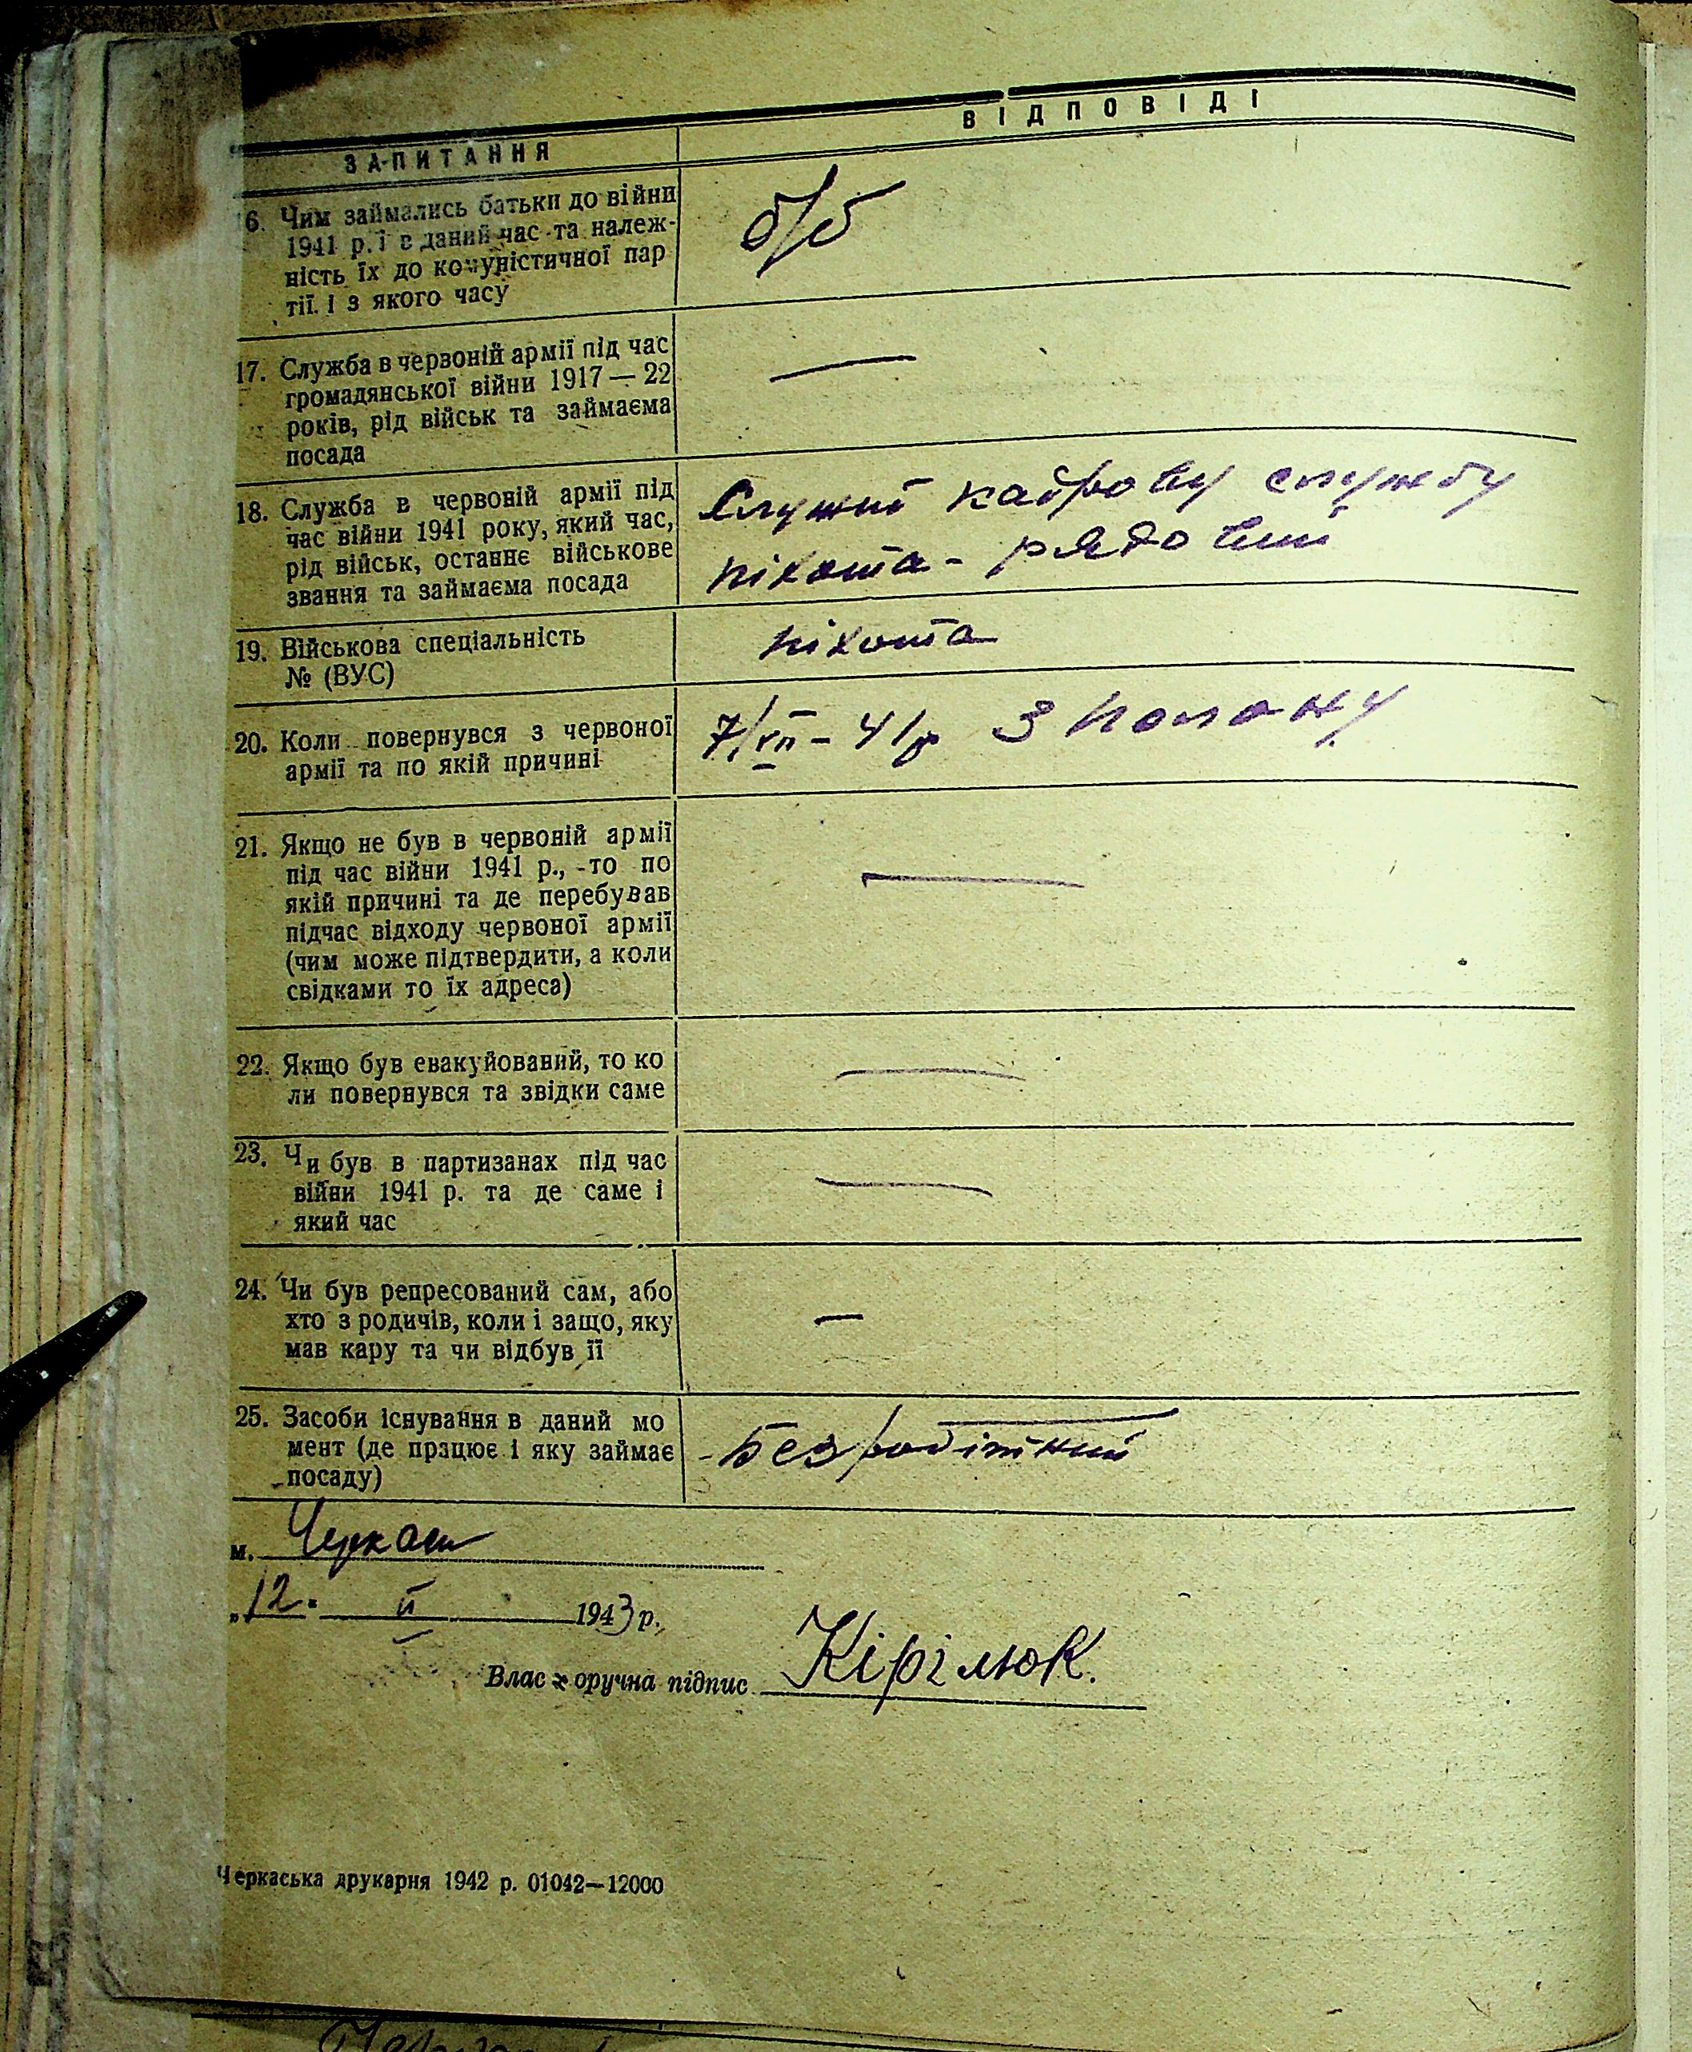 ЗАПИТАННЯ
ВІДПОВІДІ
6. Чим займались батьки до війни
1941 р. і в даний час та належ-
ність їх до комуністичної пар
тії. І з якого часу
б/б
17. Служба в червоній армії під час
громадянської війни 1917 — 22
років, рід військ та займаєма
посада
—
18. Служба в червоній армії під
час війни 1941 року, який час,
рід військ, останнє військове
звання та займаєма посада
Служив кадрову службу
піхота - рядовий
19. Військова спеціальність
№ (ВУС)
піхота
20. Коли повернувся з червоної
армії та по якій причині
7/VII - 41р З полону
21. Якщо не був в червоній армії
під час війни 1941 р., -то по
якій причині та де перебував
підчас відходу червоної армії
(чим може підтвердити, а коли
свідками то їх адреса)
—
22. Якщо був евакуйований, то ко
ли повернувся та звідки саме
—
23. Чи був в партизанах під час
війни 1941 р. та де саме і
який час
—
24. Чи був репресований сам, або
хто з родичів, коли і защо, яку
мав кару та чи відбув її
—
25. Засоби існування в даний мо
мент (де працює і яку займає
посаду)
м. Черкаси
„12" II 1943 р.
Власноручна підпис Кірілюк.
Черкаська друкарня 1942 р. 01042—12000